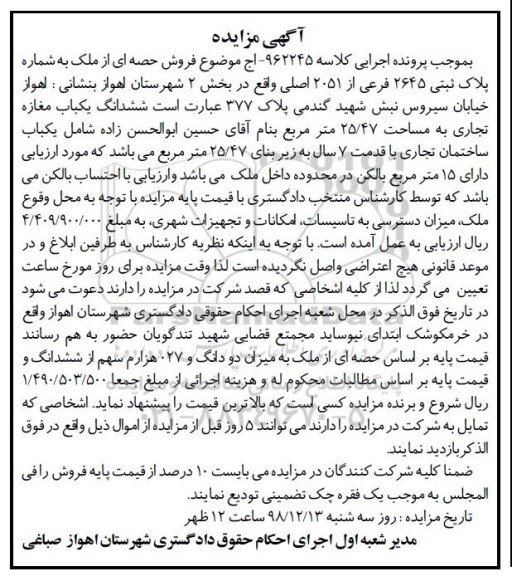 آگهی مزایده
بموجب پرونده اجرایی کلاسه ۹۶۲۲۴۵- اج موضوع فروش حصه ای از ملک به شماره
پلاک ثبتی ۲۶۴۵ فرعی از ۲۰۵۱ اصلی واقع در بخش ۲ شهرستان اهواز بنشانی : اهواز
خیابان سیروس نبش شهید گندمی پلاک ۳۷۷ عبارت است ششدانگ یکباب مغازه
تجاری به مساحت ۲۵/۴۷ متر مربع بنام آقای حسین ابوالحسن زاده شامل یکباب
ساختمان تجاری با قدمت ۷ سال به زیر بنای ۲۵/۴۷ متر مربع می باشد که مورد ارزیابی
دارای ۱۵ متر مربع بالکن در محدوده داخل ملک می باشد و ارزیابی با احتساب بالکن می
باشد که توسط کارشناس منتخب دادگستری با قیمت پایه مزایده با توجه به محل وقوع
ملک، میزان دسترسی به تاسیسات، امکانات و تجهیزات شهری، به مبلغ ۴/۴۰۹/۹۰۰/۰۰۰
ریال ارزیابی به عمل آمده است. با توجه به اینکه نظریه کارشناس به طرفین ابلاغ و در
موعد قانونی هیچ اعتراضی واصل نگردیده است لذا وقت مزایده برای روز مورخ ساعت
تعیین می گردد لذا از کلیه اشخاصی که قصد شرکت در مزایده را دارند دعوت می شود
در تاریخ فوق الذکر در محل شعبه اجرای احکام حقوقی دادگستری شهرستان اهواز واقع
در خرمکوشک ابتدای نیوساید مجمتع قضایی شهید تندگویان حضور به هم رسانند
قیمت پایه بر اساس حصه ای از ملک به میزان دو دانگ و ۰۲۷ هزارم سهم از ششدانگ و
قیمت پایه بر اساس مطالبات محکوم له و هزینه اجرائی از مبلغ جمعا ۱/۴۹۰/۵۰۳/۵۰۰
ریال شروع و برنده مزایده کسی است که بالاترین قیمت را پیشنهاد نماید. اشخاصی که
تمایل به شرکت در مزایده را دارند می توانند ۵ روز قبل از مزایده از اموال ذیل واقع در فوق
الذکر بازدید نمایند.
ضمنا کلیه شرکت کنندگان در مزایده می بایست ۱۰ درصد از قیمت پایه فروش را فی
المجلس به موجب یک فقره چک تضمینی تودیع نمایند.
تاریخ مزایده : روز سه شنبه ۹۸/۱۲/۱۳ ساعت ۱۲ ظهر
مدیر شعبه اول اجرای احکام حقوق دادگستری شهرستان اهواز صباغی